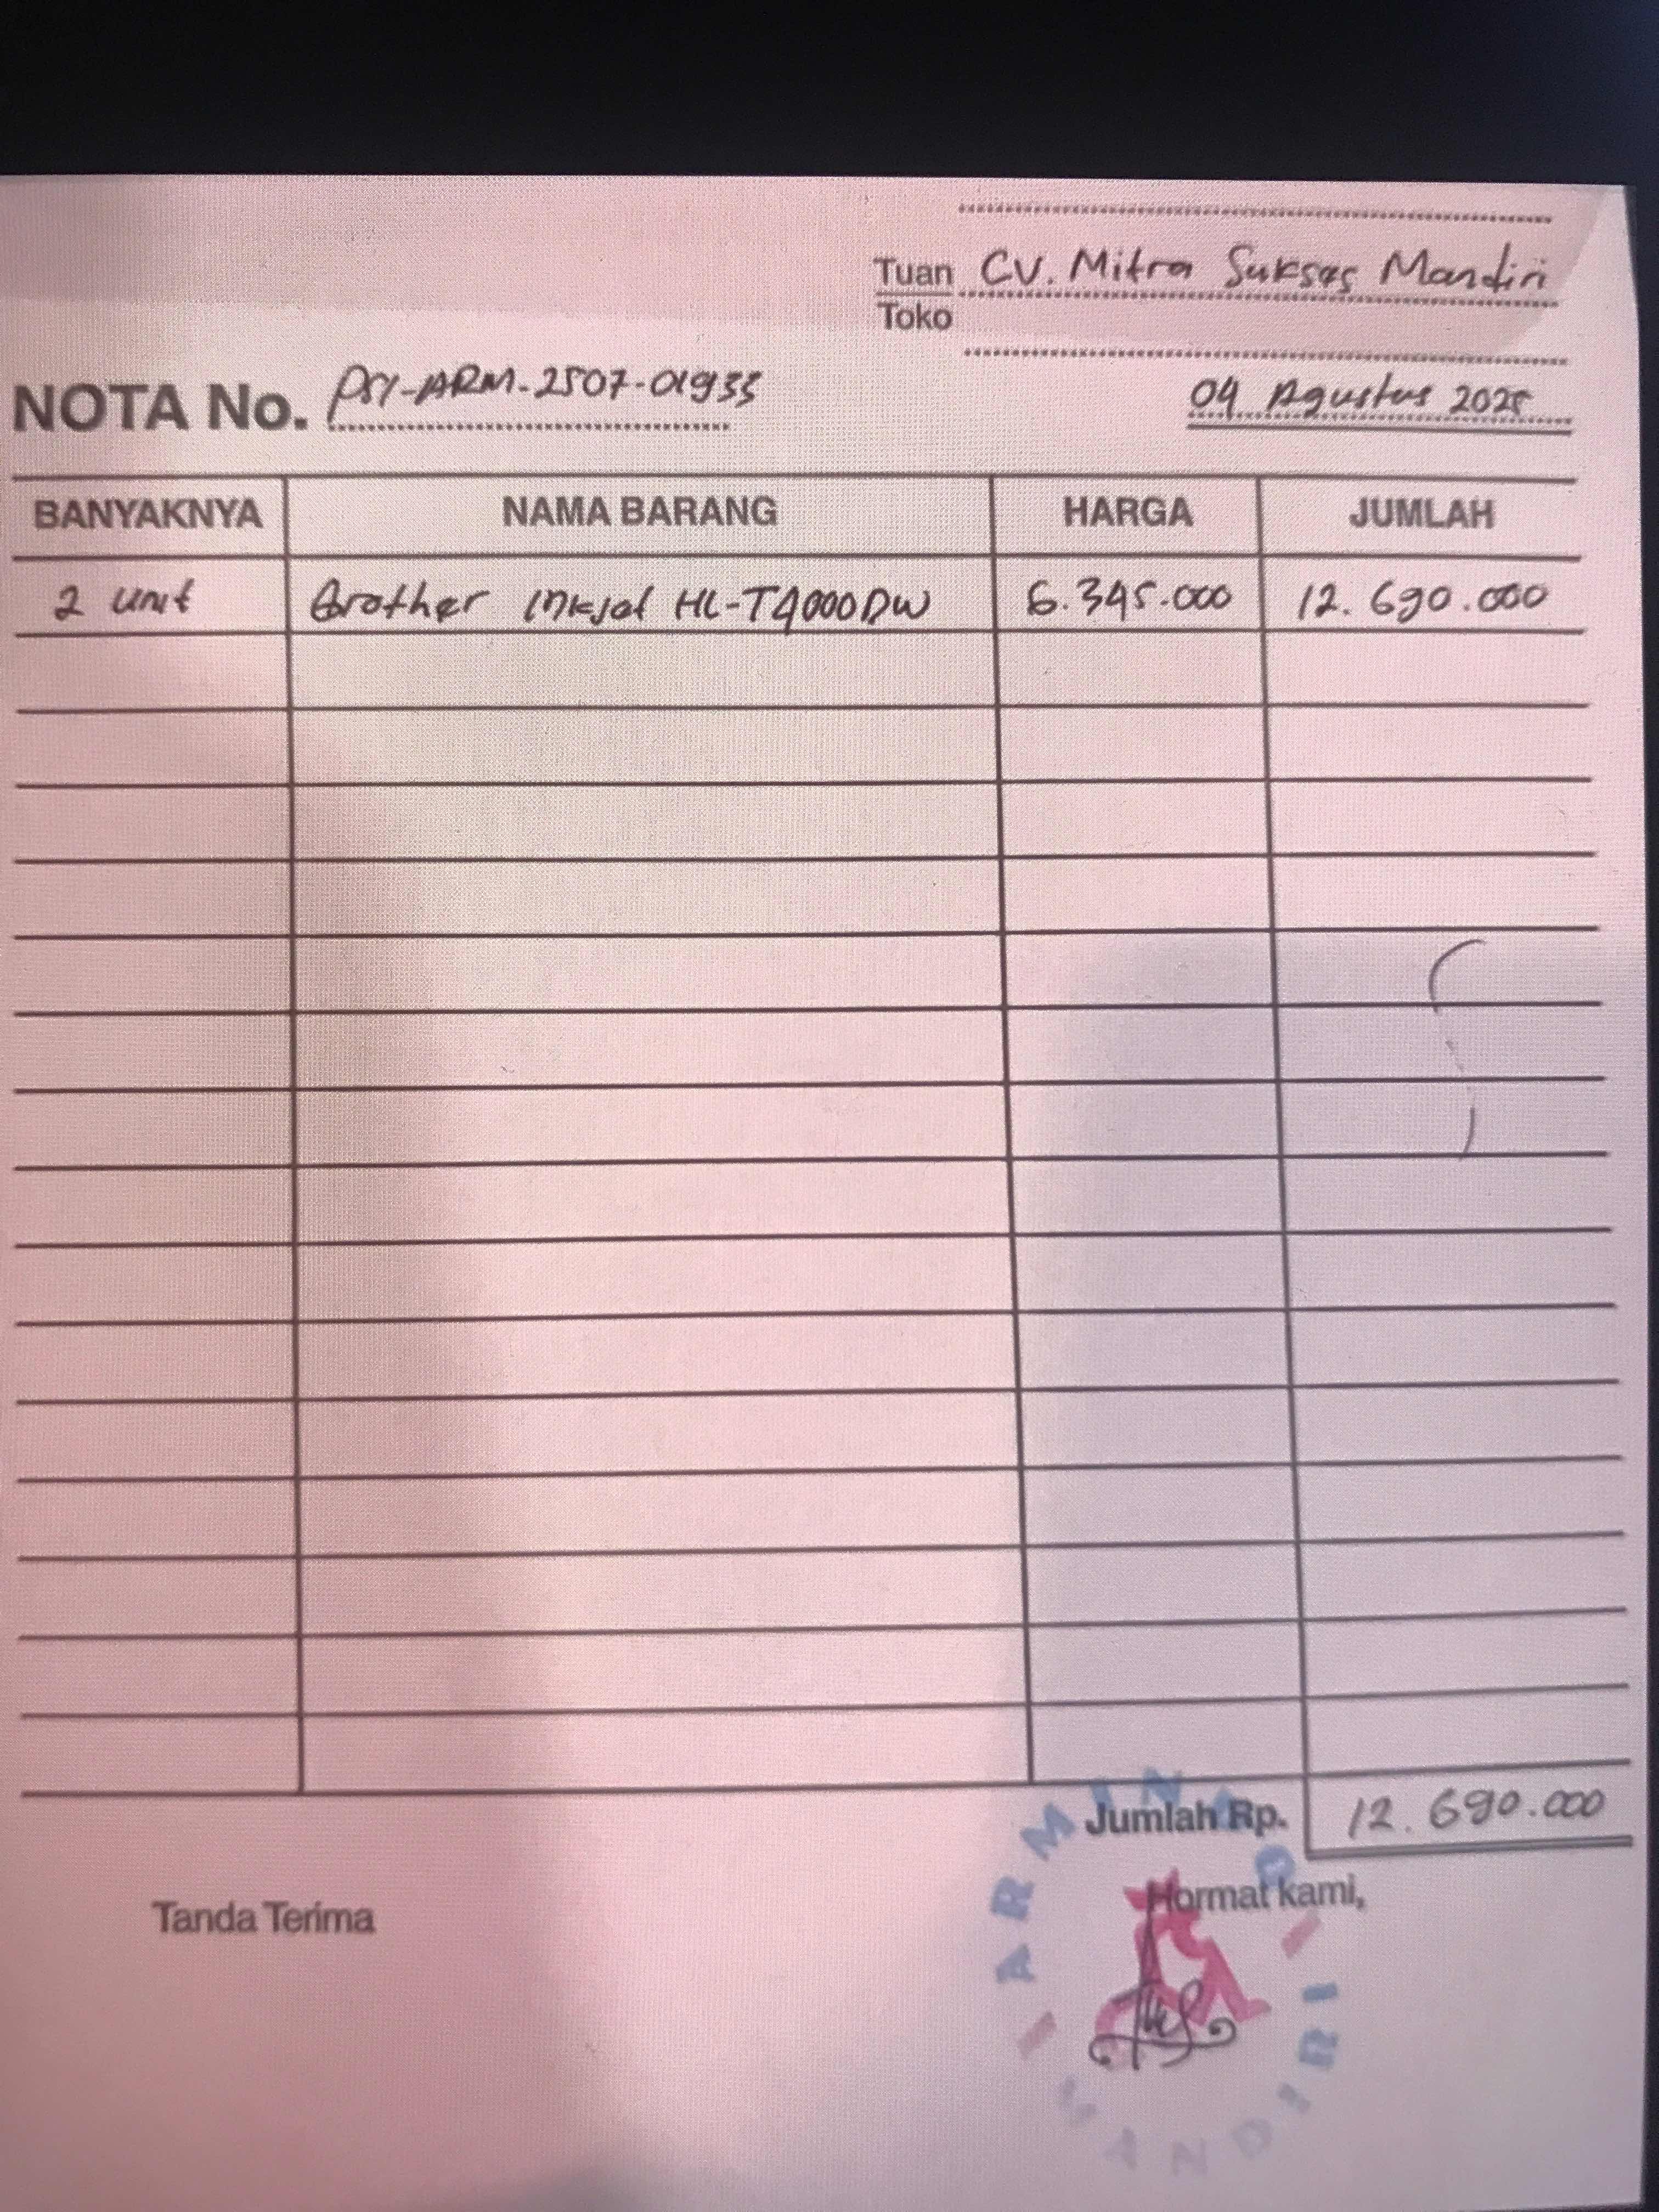 Tuan CV. Mitra Sukses Mandiri
Toko
NOTA No. PSY-ARM-2507-01935
04 Agustus 2025
BANYAKNYA NAMA BARANG HARGA JUMLAH
2 unit Brother Inkjet HL-T4000DW 6.345.000 12.690.000
Jumlah Rp. 12.690.000
Tanda Terima
Hormat kami,
MANDIRI